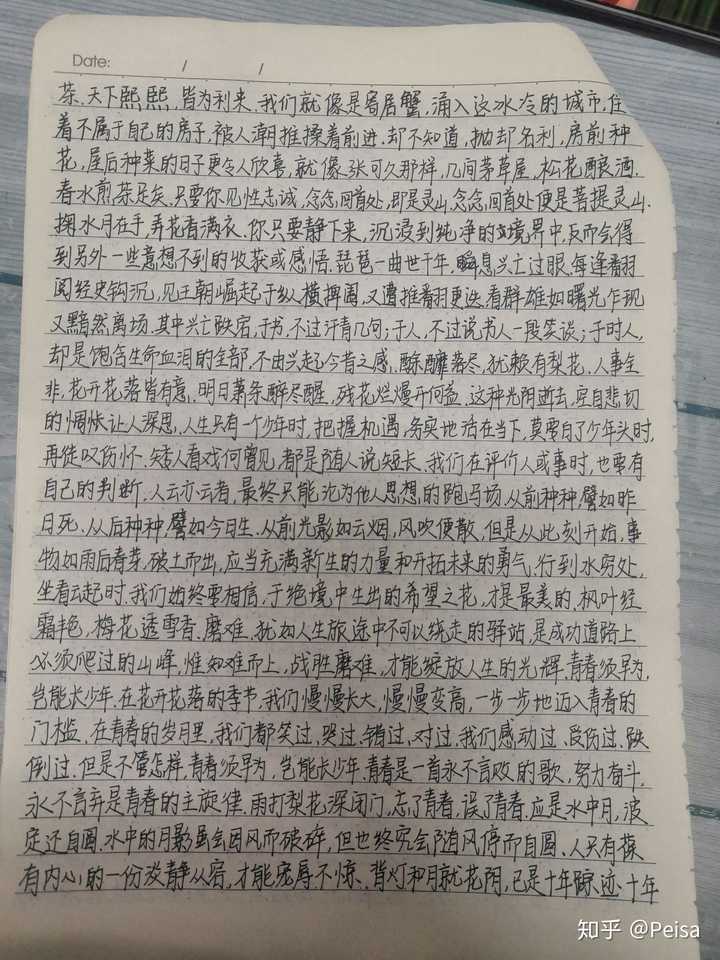 Date: / /
茶.天下熙熙,皆为利来.我们就像是寄居蟹,涌入这冰冷的城市,住
着不属于自己的房子,被人潮推搡着前进,却不知道,抛却名利,房前种
花,屋后种菜的日子更令人欣喜,就像张可久那样,几间茅草屋,松花酿酒.
春水煎茶足矣.只要你见性志诚,念念回首处,即是灵山.念念回首处便是菩提灵山.
掬水月在手,弄花香满衣.你只要静下来,沉浸到纯净的境界中,反而会得
到另外一些意想不到的收获或感悟.琵琶一曲世千年,瞬息兴亡过眼.每逢翻
阅经史钩沉,见王朝崛起于纵横捭阖,又遭推翻更迭.看群雄如曙光乍现
又黯然离场.其中兴亡跌宕,于书,不过汗青几句;于人,不过说书人一段笑谈;于时人,
却是饱含生命血泪的全部,不由兴起今昔之感.酴醾落尽,犹赖有梨花.人事全
非,花开花落皆有意.明日萧条醉尽醒,残花烂熳开何益.这种光阴逝去,空自悲切
的惆怅让人深思.人生只有一个少年时,把握机遇,务实地活在当下,莫零白了少年头时,
再徒叹伤怀.矮人看戏何曾见,都是随人说短长.我们在评价人或事时,也要有
自己的判断.人云亦云者,最终只能沦为他人思想的跑马场.从前种种,譬如昨
日死.从后种种,譬如今日生.从前光影如云烟,风吹便散,但是从此刻开始,事
物如雨后春芽,破土而出,应当充满新生的力量和开拓未来的勇气.行到水穷处,
坐看云起时.我们始终要相信,于绝境中生出的希望之花,才是最美的.枫叶经
霜艳,梅花透雪香.磨难,犹如人生旅途中不可以绕走的驿站,是成功道路上
必须爬过的山峰,惟知难而上,战胜磨难,才能绽放人生的光辉.青春须早为,
岂能长少年.在花开花落的季节,我们慢慢长大,慢慢变高,一步一步地迈入青春的
门槛.在青春的岁月里,我们都笑过,哭过.错过,对过.我们感动过.受伤过.跌
倒过.但是不管怎样,青春须早为,岂能长少年.青春是一首永不言败的歌,努力奋斗,
永不言弃是青春的主旋律.雨打梨花深闭门,忘了青春,误了青春.应是水中月,波
定还自圆.水中的月影虽会因风而破碎,但也终究会随风停而自圆.人只有葆
有内心的一份淡静从容,才能宠辱不惊.背灯和月就花阴,已是十年踪迹十年
知乎 @Peisa